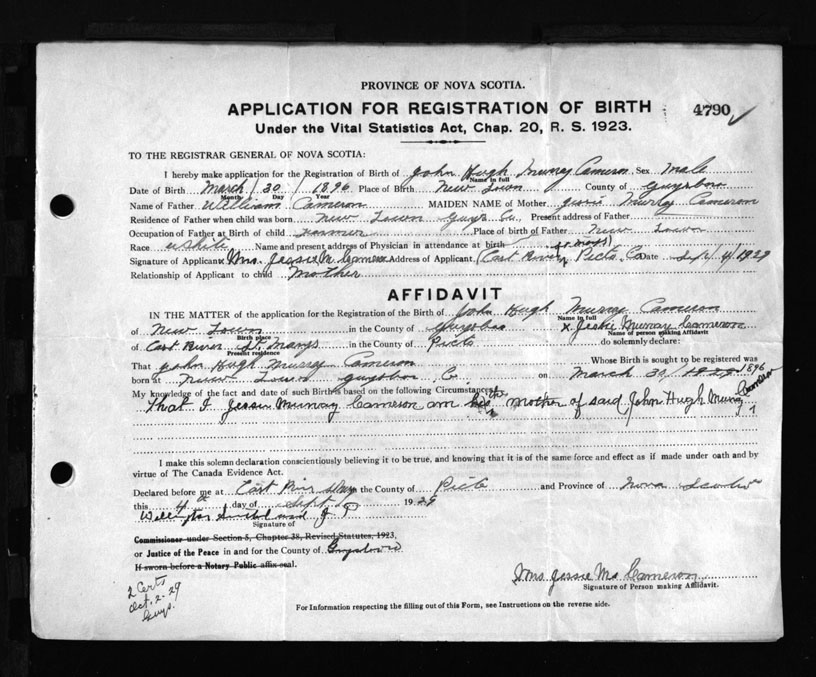 PROVINCE OF NOVA SCOTIA.
APPLICATION FOR REGISTRATION OF BIRTH 4790
Under the Vital Statistics Act, Chap. 20, R. S. 1923.
TO THE REGISTRAR GENERAL OF NOVA SCOTIA:
I hereby make application for the Registration of Birth of John Hugh Murray Cameron Sex Male
Name in full
Date of Birth March / 30 / 1896 Place of Birth New Town County of Guysboro
Month Day Year
Name of Father William Cameron MAIDEN NAME of Mother Jessie Murray Cameron
Residence of Father when child was born New Town Guys Co. Present address of Father
Occupation of Father at Birth of child Farmer Place of birth of Father New Town
Race white Name and present address of Physician in attendance at birth
Signature of Applicant x Mrs. Jessie M Cameron Address of Applicant (East River St Marys) Picto Co Date Sept / 4 / 1929
Relationship of Applicant to child Mother
AFFIDAVIT
IN THE MATTER of the application for the Registration of the Birth of John Hugh Murray Cameron
Name in full
of New Town in the County of Guysboro x Jessie Murray Cameron
Birth place Name of person making Affidavit
of East River St. Marys in the County of Picto do solemnly declare:
Present residence
That John Hugh Murray Cameron Whose Birth is sought to be registered was
born at New Town Guysboro Co. on March 30 / 1896
My knowledge of the fact and date of such Birth is based on the following Circumstances:
That I Jessie Murray Cameron am the mother of said John Hugh Murray Cameron
I make this solemn declaration conscientiously believing it to be true, and knowing that it is of the same force and effect as if made under oath and by
virtue of The Canada Evidence Act.
Declared before me at East River St Marys in the County of Picto and Province of Nova Scotia
this 4th day of Sept 1929
Wellington Sutherland J P
Signature of
Commissioner under Section 5, Chapter 38, Revised Statutes, 1923,
or Justice of the Peace in and for the County of Guysboro
If sworn before a Notary Public affix seal.
Mrs Jessie M Cameron
Signature of Person making Affidavit.
2 Certs
Oct. 2-29
Guys.
For Information respecting the filling out of this Form, see Instructions on the reverse side.